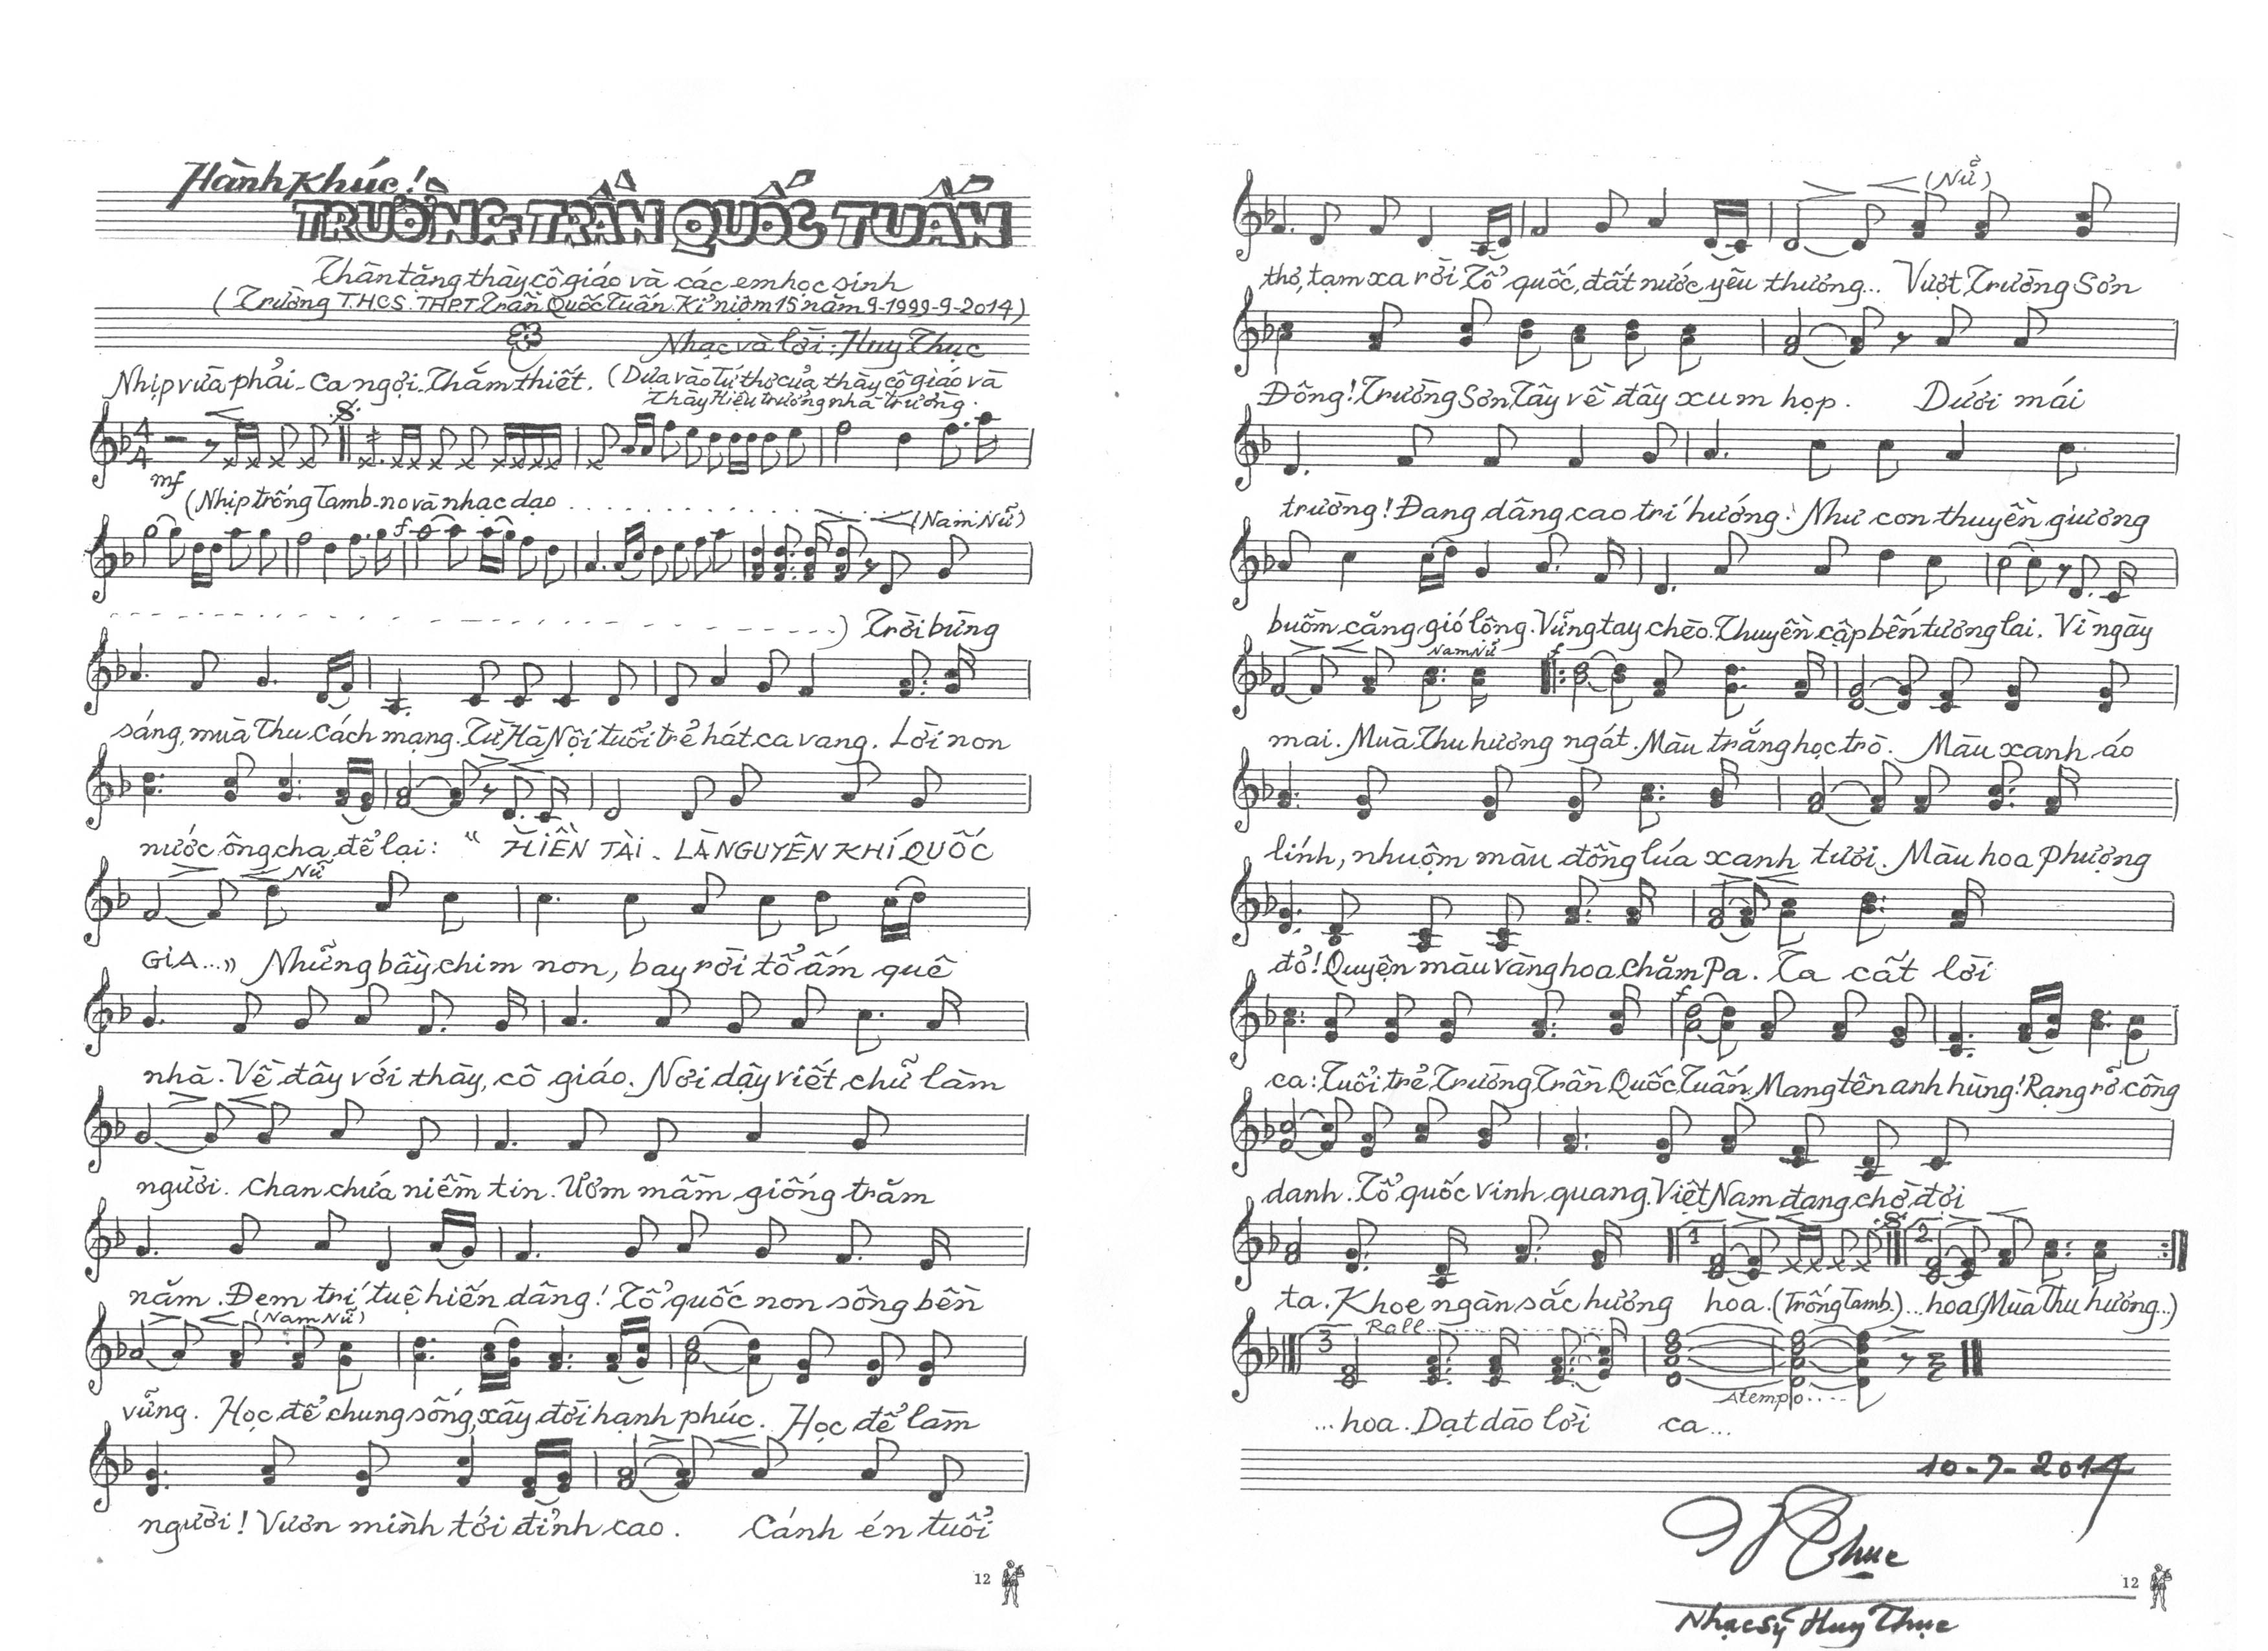 Hành Khúc!
TRƯỜNG TRẦN QUỐC TUẤN
Thân tặng thày cô giáo và các em học sinh
(Trường T.HCS. THPT Trần Quốc Tuấn. Kỉ niệm 15 năm 9-1999-9-2014)
Nhạc và lời: Huy Thục
Nhịp vừa phải - ca ngợi. Thắm thiết. (Dựa vào tứ thơ của thày cô giáo và
Thày Hiệu trưởng nhà trường.
4
4
mf
(Nhịp trống Tamb-no và nhạc dạo
f
(Nam Nữ)
) Trời bừng
sáng, mùa Thu Cách mạng. Từ Hà Nội tuổi trẻ hát ca vang. Lời non
nước ông cha để lại: " HIỀN TÀI - LÀ NGUYÊN KHÍ QUỐC
Nữ
GIA..." Những bầy chim non, bay rời tổ ấm quê
nhà. Về đây với thày, cô giáo. Nơi dậy viết chữ làm
người. Chan chứa niềm tin. Ươm mầm giống trăm
năm. Đem trí tuệ hiến dâng! Tổ quốc non sông bền
(Nam Nữ)
vững. Học để chung sống, xây đời hạnh phúc. Học để làm
người! Vươn mình tới đỉnh cao. Cánh én tuổi
12
(Nữ)
thơ, tạm xa rời Tổ quốc, đất nước yêu thương... Vượt Trường Sơn
Đông! Trường Sơn Tây về đây xum họp. Dưới mái
trường! Đang dâng cao trí hướng! Như con thuyền giương
buồm căng gió lộng. Vững tay chèo. Thuyền cập bến tương lai. Vì ngày
Nam Nữ
f
mai. Mùa Thu hương ngát. Màu trắng học trò. Màu xanh áo
lính, nhuộm màu đồng lúa xanh tươi. Màu hoa Phượng
đỏ! Quyện màu vàng hoa Chăm Pa. Ta cất lời
f
ca: Tuổi trẻ Trường Trần Quốc Tuấn. Mang tên anh hùng! Rạng rỡ công
danh. Tổ quốc vinh quang. Việt Nam đang chờ đợi
1
2
ta. Khoe ngàn sắc hương hoa. (Trống Tamb.)...hoa (Mùa Thu hương..)
3
Rall
Atempo....
...hoa. Dạt dào lời ca...
10-7-2014
Thục
12
Nhạc sỹ Huy Thục